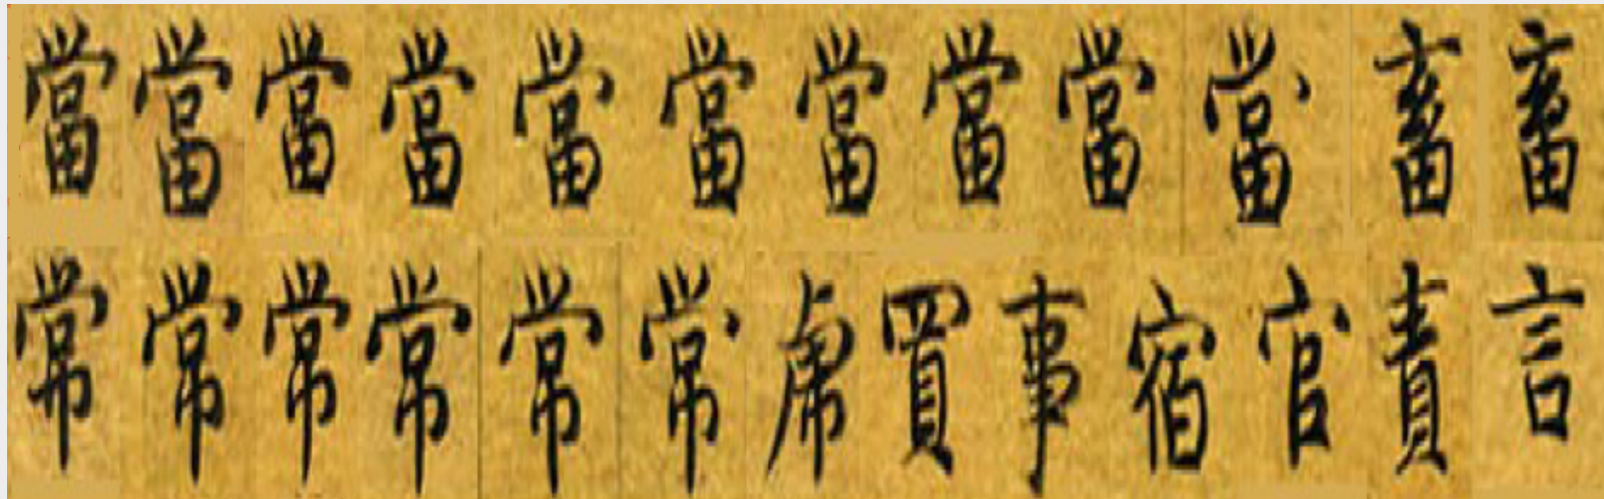 當當當當當當當當當當畜畜
常常常常常常虜買事宿官責言